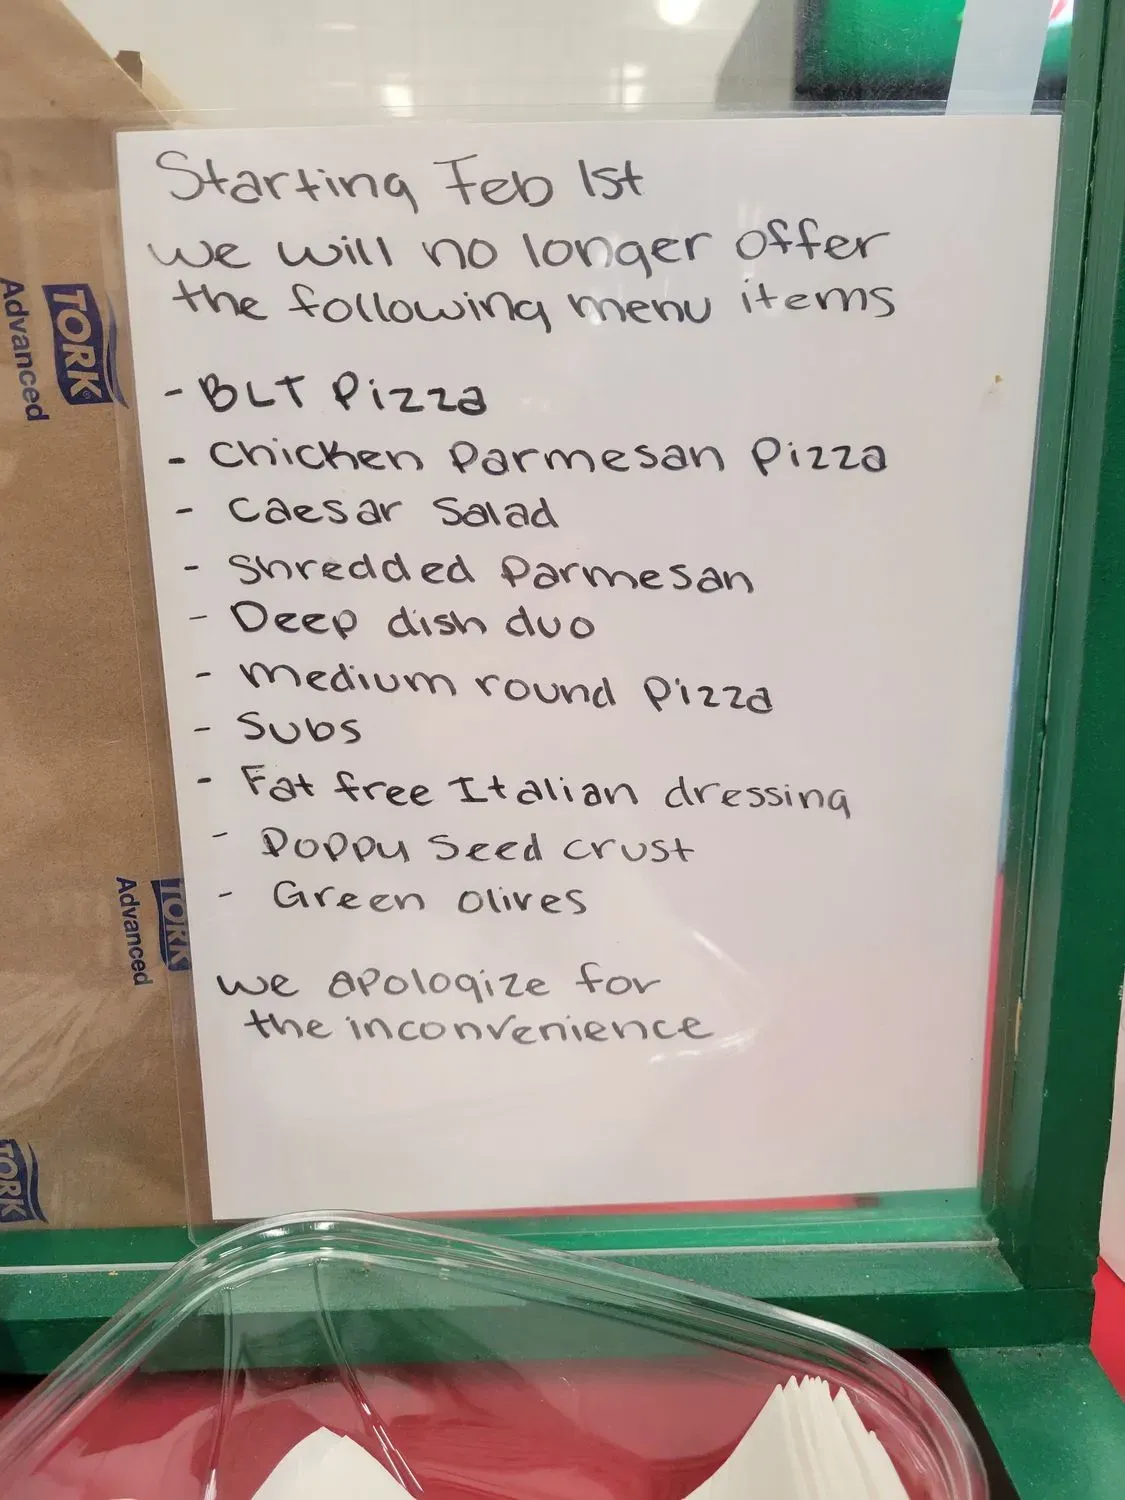 Starting Feb 1st
we will no longer offer
the following menu items
- BLT Pizza
- Chicken Parmesan Pizza
- Caesar Salad
- Shredded Parmesan
- Deep dish duo
- Medium round Pizza
- Subs
- Fat free Italian dressing
- Poppy Seed crust
- Green olives
we apologize for
the inconvenience
TORK
Advanced
TORK
Advanced
TORK